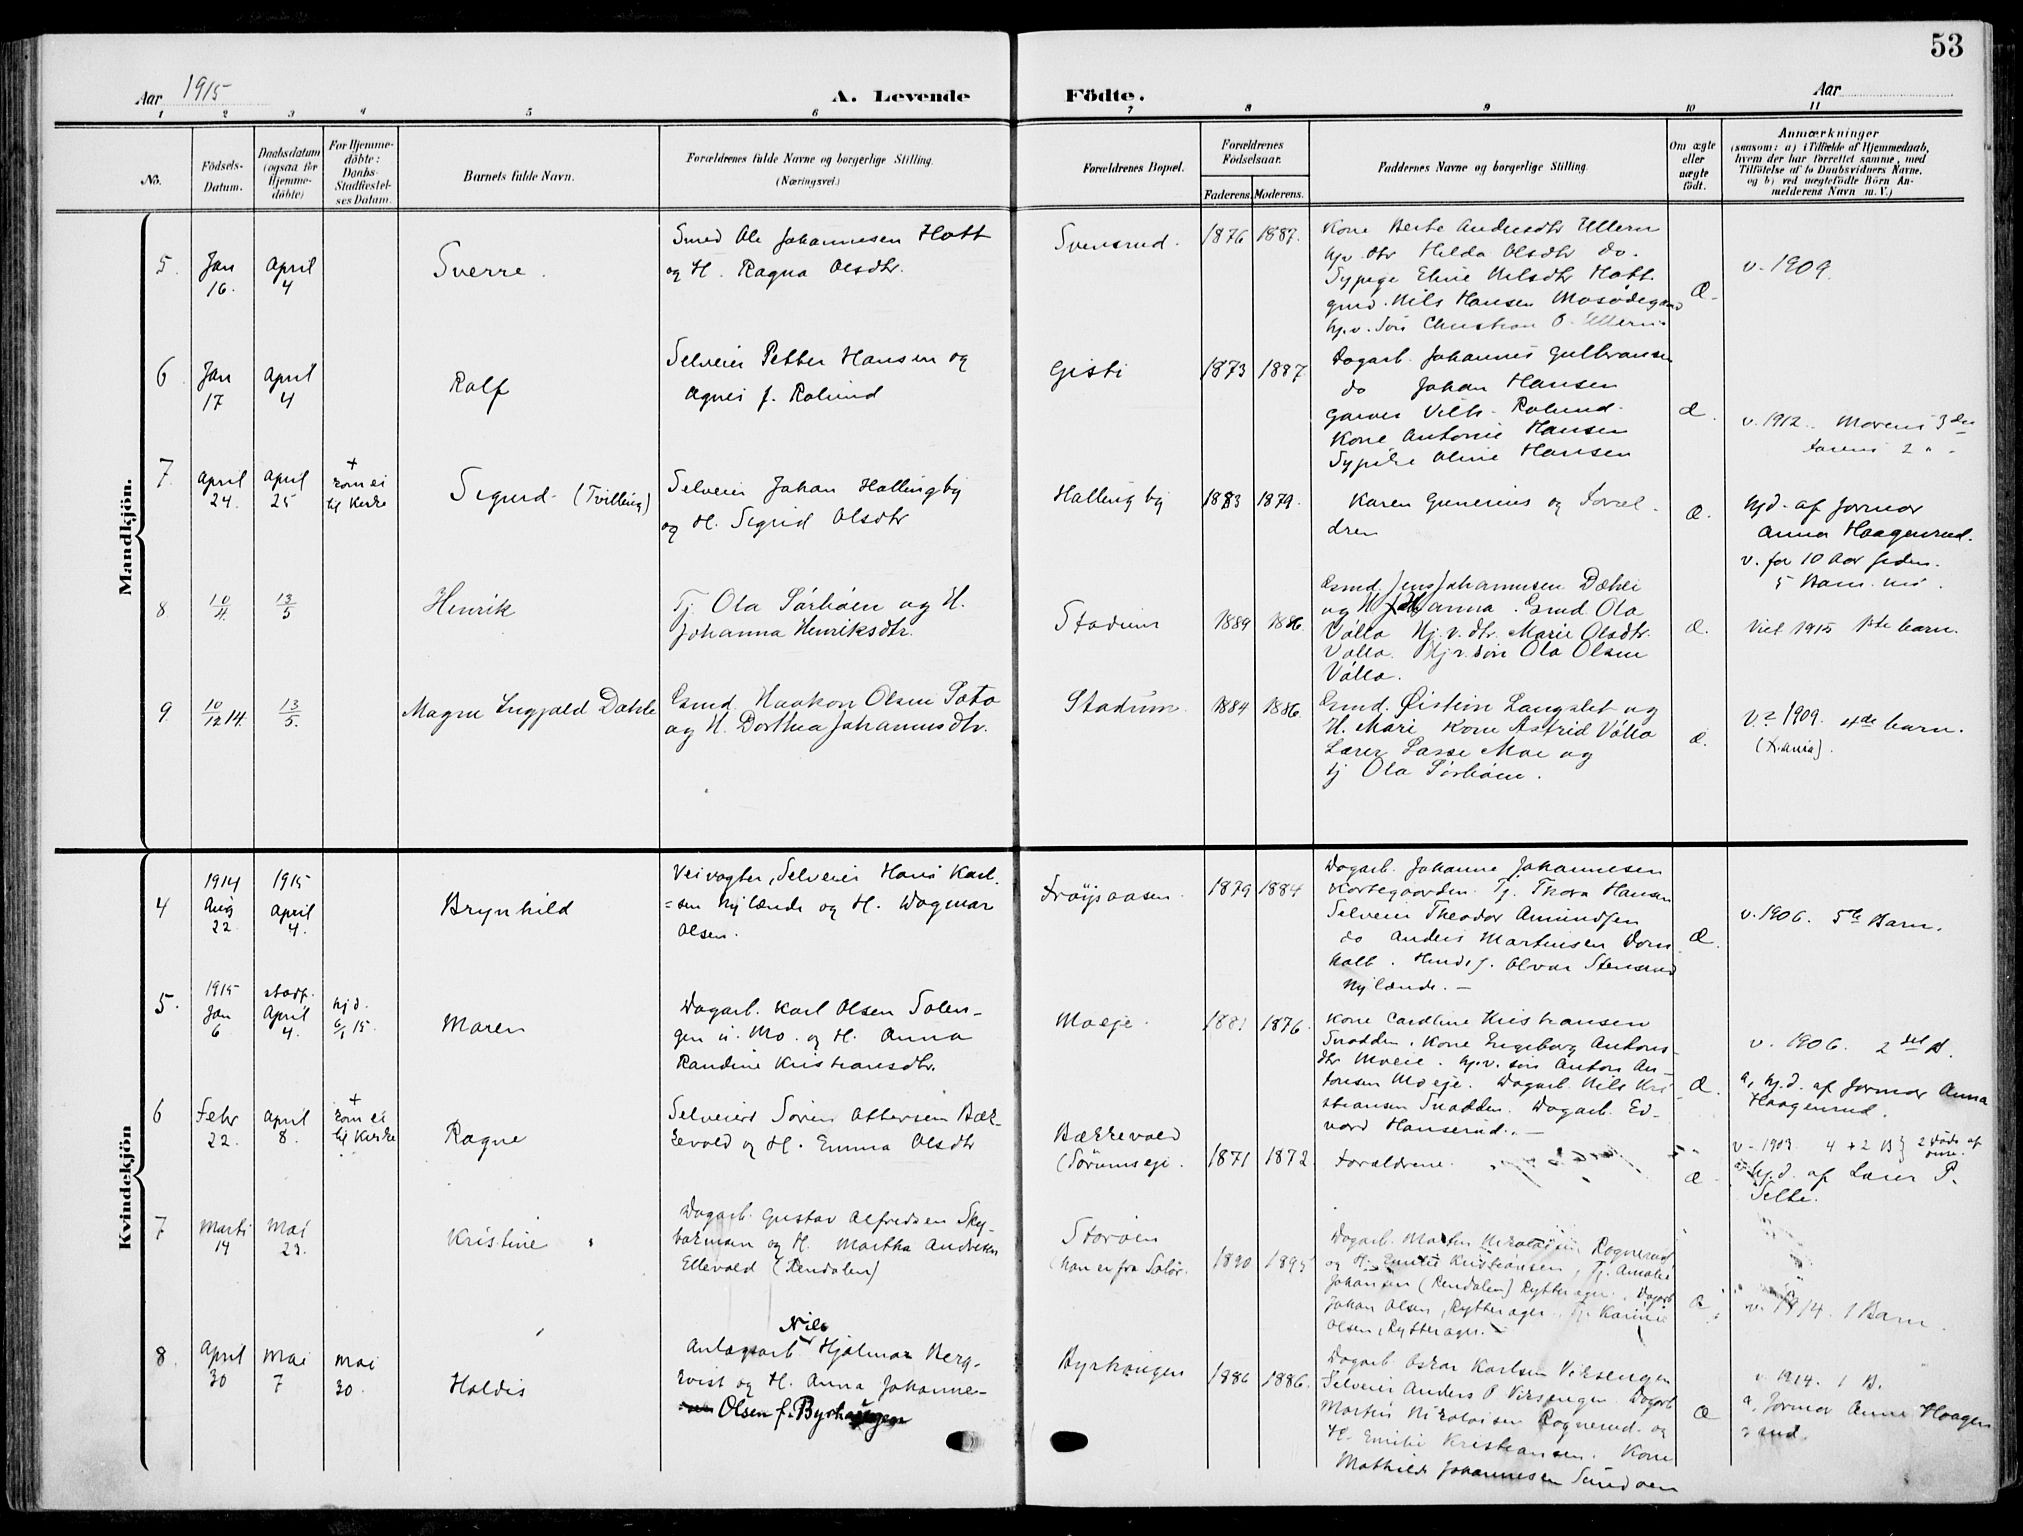 53
Aar 1915
A. Levende Födte.
Aar
1 2 3 4 5 6 7 8 9 10 11
No.
Födsels-Datum.
Daabsdatum (ogsaa for Hjemme-döbte)
For Hjemme-döbte: Daabs-Stadfæstel-ses Datum.
Barnets fulde Navn.
Forældrenes fulde Navne og borgerlige Stilling. (Næringsvei.)
Forældrenes Bopæl.
Forældrenes Födselsaar.
Faderens. Moderens.
Faddernes Navne og borgerlige Stilling.
Om ægte eller uægte födt.
Anmærkninger
(saasom: a) i Tilfælde af Hjemmedaab,
hvem der har forrettet samme, med
Tilföielse af to Daabsvidners Navne,
og b) ved uægtefödte Börn An-
melderens Navn m. V.)
Mandkjön.
5. Jan 16. April 4
Sverre.
Smed Ole Johannesen Hatt
og H. Ragna Olsdtr.
Svensrud.
1876 1887.
Kone Berte Andersdtr Ullern
hjv. dtr Hilda Olsdtr do.
Sypige Eline Nilsdtr Hatt.
gmd. Nils Hansen Mosödegaard
hj.v. Søn Christian O. Ullern.
Æ.
v. 1909.
6. Jan 17 April 4
Rolf
Selveier Petter Hansen og
Agnes f. Rolund
Gisti
1873 1887
Dagarb. Johannes Gulbransen
do Johan Hansen
Garver Vilh. Rolund.
Kone Antonie Hansen
Sypike Oline Hansen
Æ.
v. 1912. Morens 3die
Farens 2 " "
7. April 24. April 25
+ kom ei til Kirke
Sigurd (Tvilling)
Selveier Johan Hallingby
og H. Sigrid Olsdtr
Hallingby
1883 1879.
Karen Gunerius og Foræl-
dren
Æ.
hjd. af Jormor
Anna Haagenrud.
v. for 10 Aar siden.
5 Barn.
8 10/4. 13/5
Henrik
Tj. Ola Sørhøen og H.
Johanna Henriksdtr.
Stadum
1889 1886.
Gmd. Jens Johannesen Dæhli
og H. Johanna. Gmd. Ola
Välla Hj.v.dtr. Marie Olsdtr.
Valla. Hj.v.søn Ola Olsen
Välla.
Æ.
Viet 1915 1ste barn.
9. 10/12 14. 13/5.
Magne Ingjald Dæhle
Gmd. Haakon Olsen Sato
og H. Dorthea Johannesdtr.
Stadum.
1884 1886.
Gmd. Øistein Langslet og
H. Mari Kone Astrid Välla
Lærer Lasse Moe og
tj Ola Sørhøen.
Æ.
V. 1909. 4de barn.
(X.ania).
Kvindekjön
4 1914 Aug 22. 1915 April 4.
Brynhild
Veivogter, Selveier Hans Karl-
sen Nylænde og H. Dagmar
Olsen.
Frøysaasen.
1879 1884
Dagarb. Johanne Johannesen
Kortegaarden. Tj. Thora Hansen
Selveier Theodor Amundsen
do Anders Martinsen Dom
holt. Husfj. Olvar Stensrud
Nylænde. —
Æ.
v. 1906. 5te Barn.
5. 1915 Jan 6 stadf. April 4. hjd. 6/1 15.
Maren
Dagarb. Karl Olsen Solen-
gen u. Mo. og H. Anna
Randine Kristiansdtr.
Moeje.
1881 1876.
Kone Caroline Kristiansen
Snadden. Kone Engeborg Antons-
dtr Moeie. hj.v. søn Anton An-
tonsen Moeje. Dagarb. Nils Kri
stiansen Snadden. Dagarb. Ed-
vard Hanserud. —
Æ.
v. 1906. 2det B.
a, hj.d. af Jormor Anna
Haagenrud.
6 Febr 22. April 8. + kom ei til Kirke
Ragne
Selveier Søren Ottersen Bæk-
kevold og H. Emma Olsdtr
Bækkevold
(Sørumseje.
1871 1872.
Forældrene.
Æ.
v. 1903. 4 + 2 B} 2 døde af
a, hj.d. af Lærer P.
Selte.
7 Marts 14 Mai 23.
Kristine
Dagarb. Gustav Alfredsen Sky-
bakmoen og H. Martha Andresen
Ellevold (Rendalen)
Storøen
(han er fra Solør.
1890 1895
Dagarb. Martin Nikolaisen Rognerud
og H. Emilie Kristiansen, Tj. Amalie
Johansen (Rendalen) Rytterager. Dagarb
Johan Olsen, Rytterager. Tj. Karine
Olsen, Rytterager. —
Æ.
v. 1914. 1 Barn.
8. April 30 Mai 7 Mai 30.
Haldis
Nils
Anlægsarb. Hjalmar Berg-
kvist og H. Anna Johanne-
Olsen f. Byrhaugen
Byrhaugen
1886 1886.
Dagarb Oskar Karlsen Viksengen
Selveier Anders P Viksengen. Dagarb
Martin Nikolaisen Rognerud og
H. Emilie Kristiansen. Kone
Mathilde Johannesen Sundøen
Æ
v. 1914. 1 B.
a, Jormor Anna Haagen
srud.